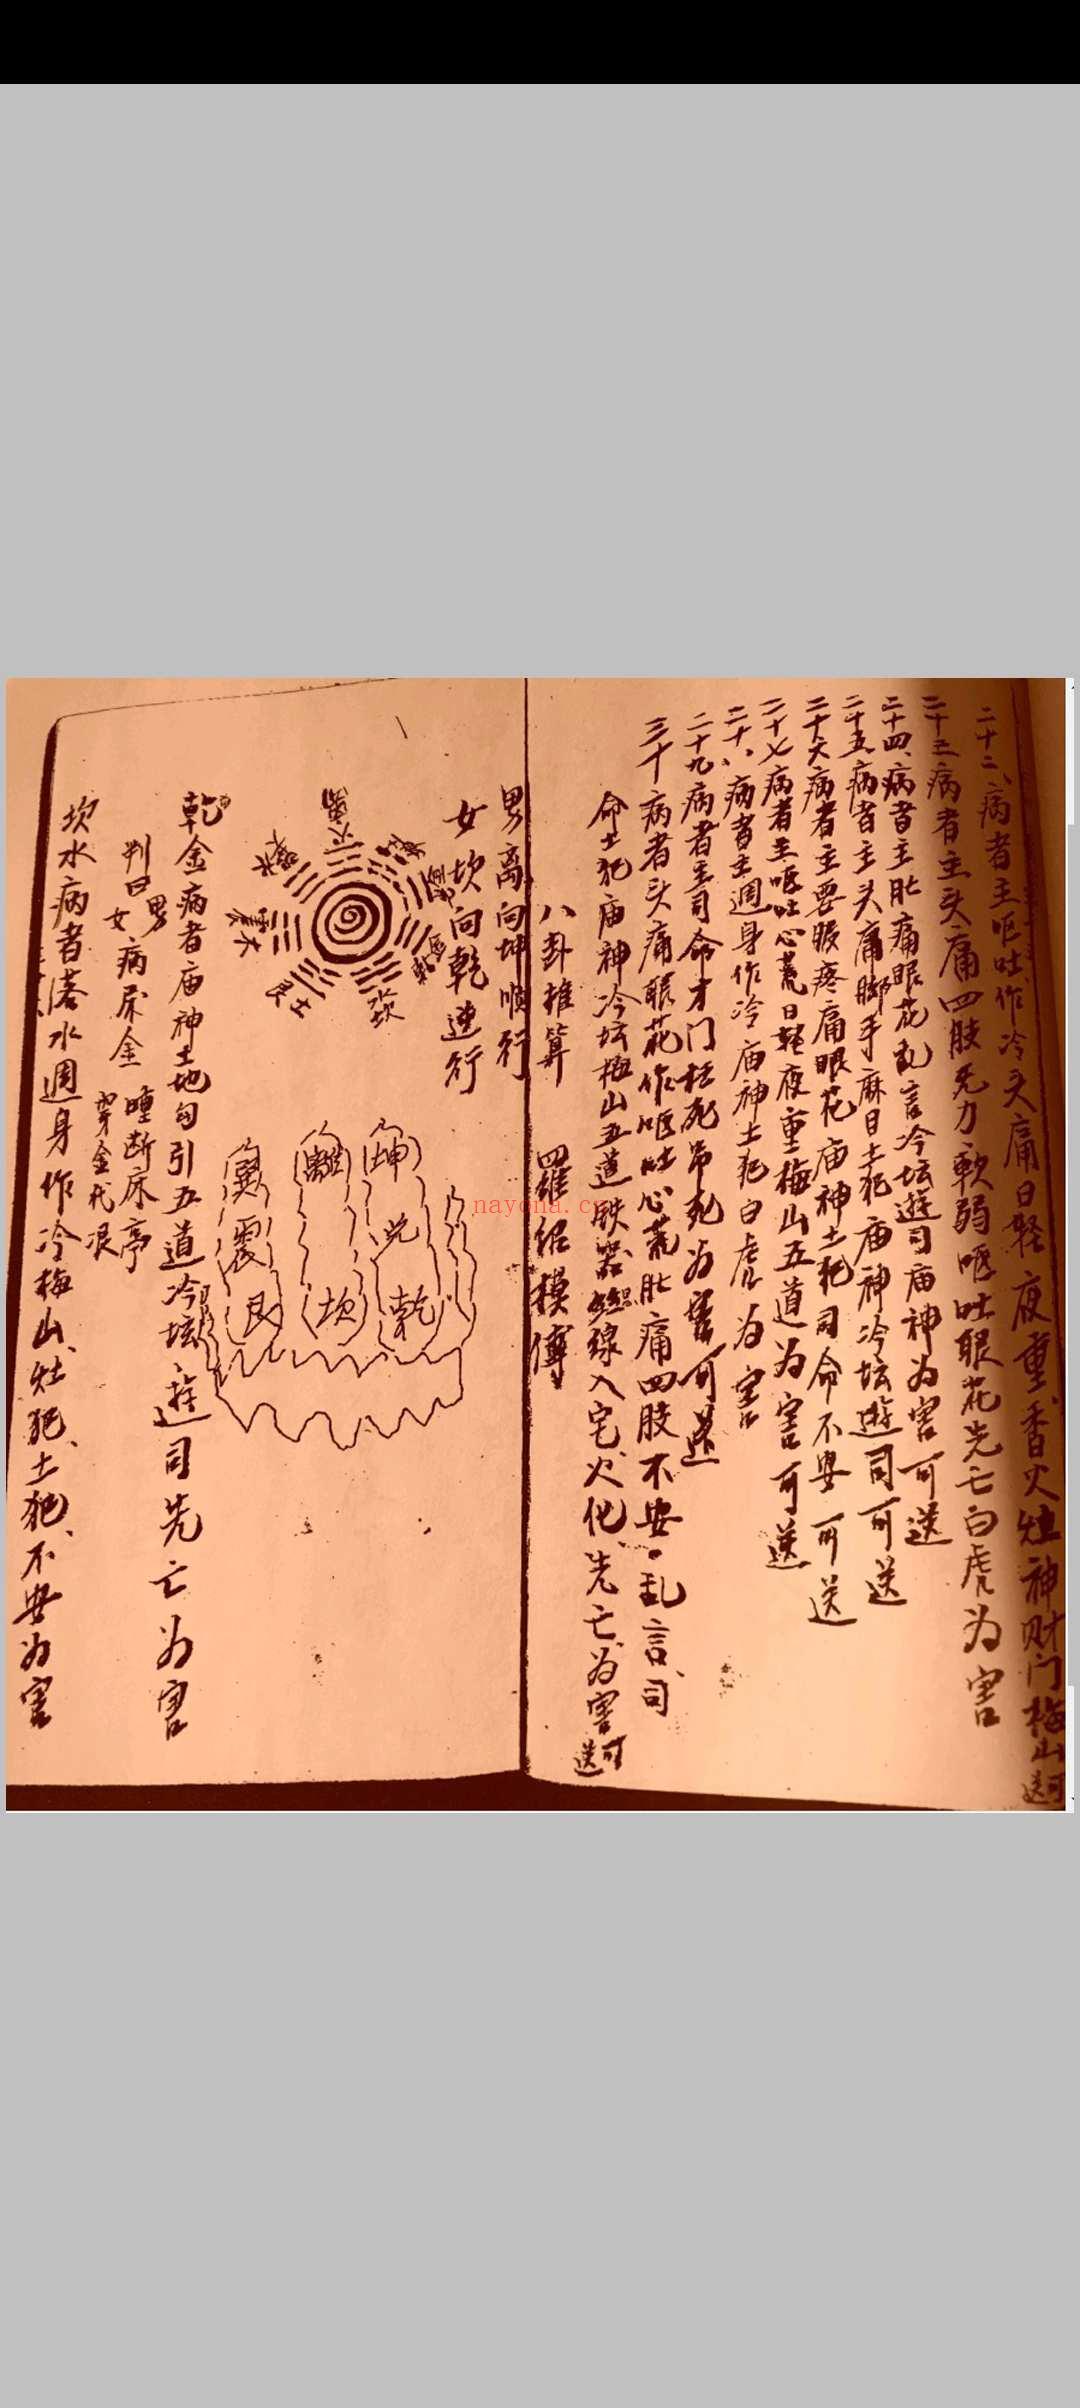 二十二、病者主呕吐、作冷头痛日轻夜重、香火灶神财门梅山可送
二十三病者主头痛四肢无力軟弱呕吐眼花先亡白虎为害
二十四、病者主肚痛眼花乱言冷坛遊司庙神为害可送
二十五、病者主头痛脚手麻日土犯庙神冷坛遊司可送
二十六病者主要眼疼痛眼花庙神土犯司命不安可送
二十七病者主呕吐心荒日轻夜重梅山五道为害可送
二十八、病者主週身作冷庙神土犯白虎为害
二十九、病者主司命才门枉死吊死为害可送
三十病者头痛眼花作呕吐心荒肚痛四肢不安·乱言、司
命土犯庙神冷坛梅山五道鉄器丝線入宅、火化、先亡为害可送
八卦推算 羅绍模傳
男离向坤顺行
女坎向乾逆行
离火
坎
艮土
震木
坤
兑
乾
離
坎
巽
震
艮
乾金病者庙神土地勾引五道冷坛遊司先亡为害
判曰男女病尿金
断床亭
穿金衣
坎水病者落水週身作冷梅山、灶犯、土犯、不安为害
nayona.c